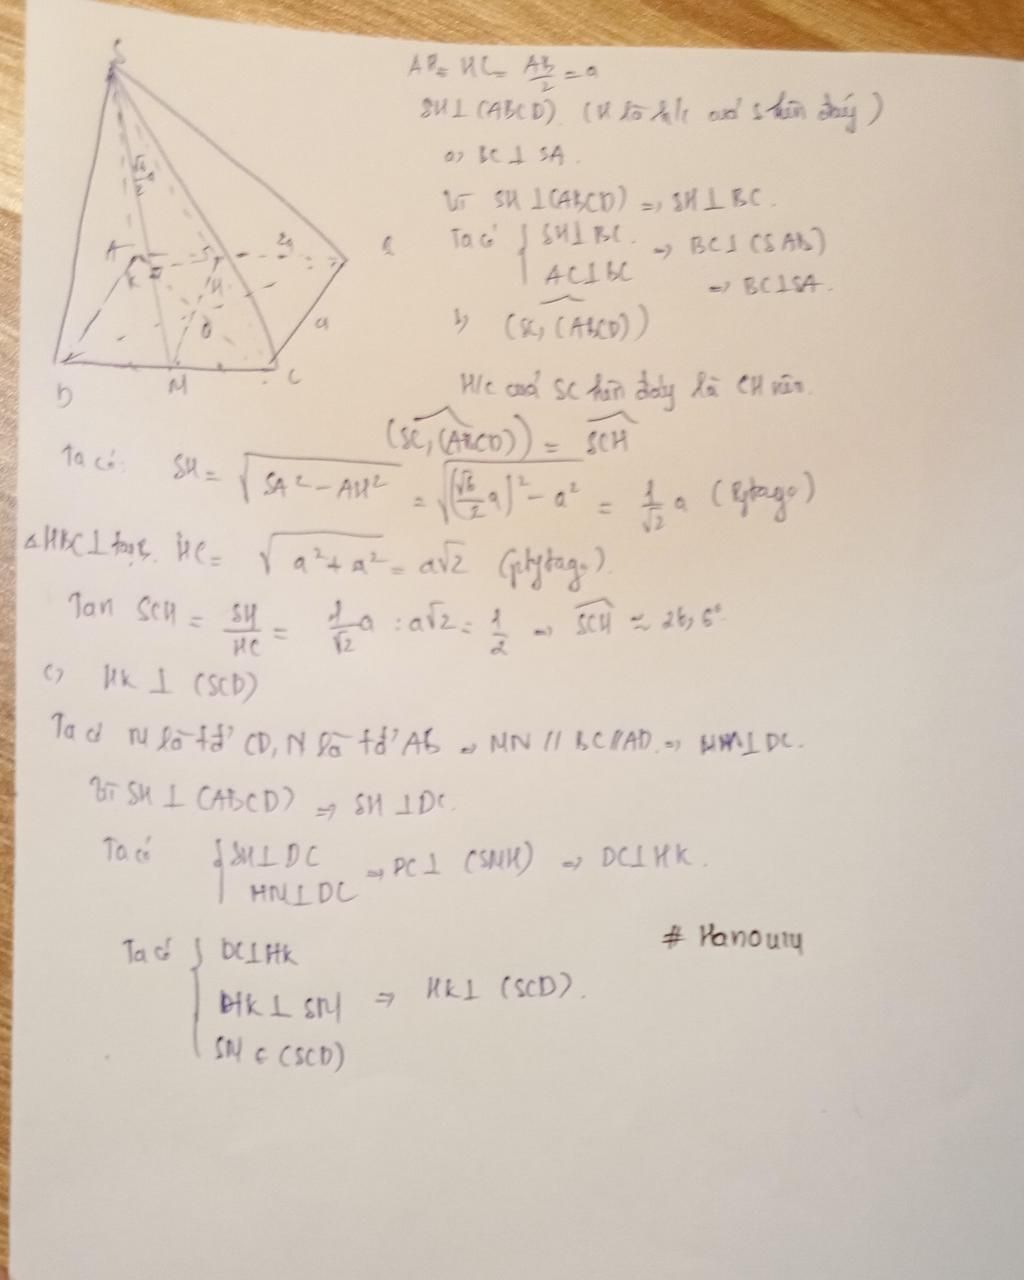 S
AH = HC = AB/2 = a
SH ⊥ (ABCD) (H là h/c của S trên đáy)
a, BC ⊥ SA.
Vì SH ⊥ (ABCD) => SH ⊥ BC.
Ta có { SH ⊥ BC. => BC ⊥ (SAB)
AC ⊥ BC => BC ⊥ SA.
b, (SC, (ABCD))
√6/2 a
A 2a
K H
a
D M C
H/c của SC trên đáy là CH nên.
(SC, (ABCD)) = SCH
Ta có: SH = √(SA² - AH²) = √((√6/2 a)² - a²) = 1/√2 a (Pytago)
△HBC ⊥ tại B. HC = √(a² + a²) = a√2 (pytago).
Tan SCH = SH/HC = 1/√2 a : a√2 = 1/2 => SCH ≈ 26,6°
c, HK ⊥ (SCD)
Ta có M là tđ' CD, H là tđ' AB => MH // BC // AD => HM ⊥ DC.
Vì SH ⊥ (ABCD) => SH ⊥ DC.
Ta có { SH ⊥ DC => DC ⊥ (SMH) => DC ⊥ HK.
HM ⊥ DC
Ta có { DC ⊥ HK
HK ⊥ SM => HK ⊥ (SCD).
SM ⊂ (SCD)
# Hanoury